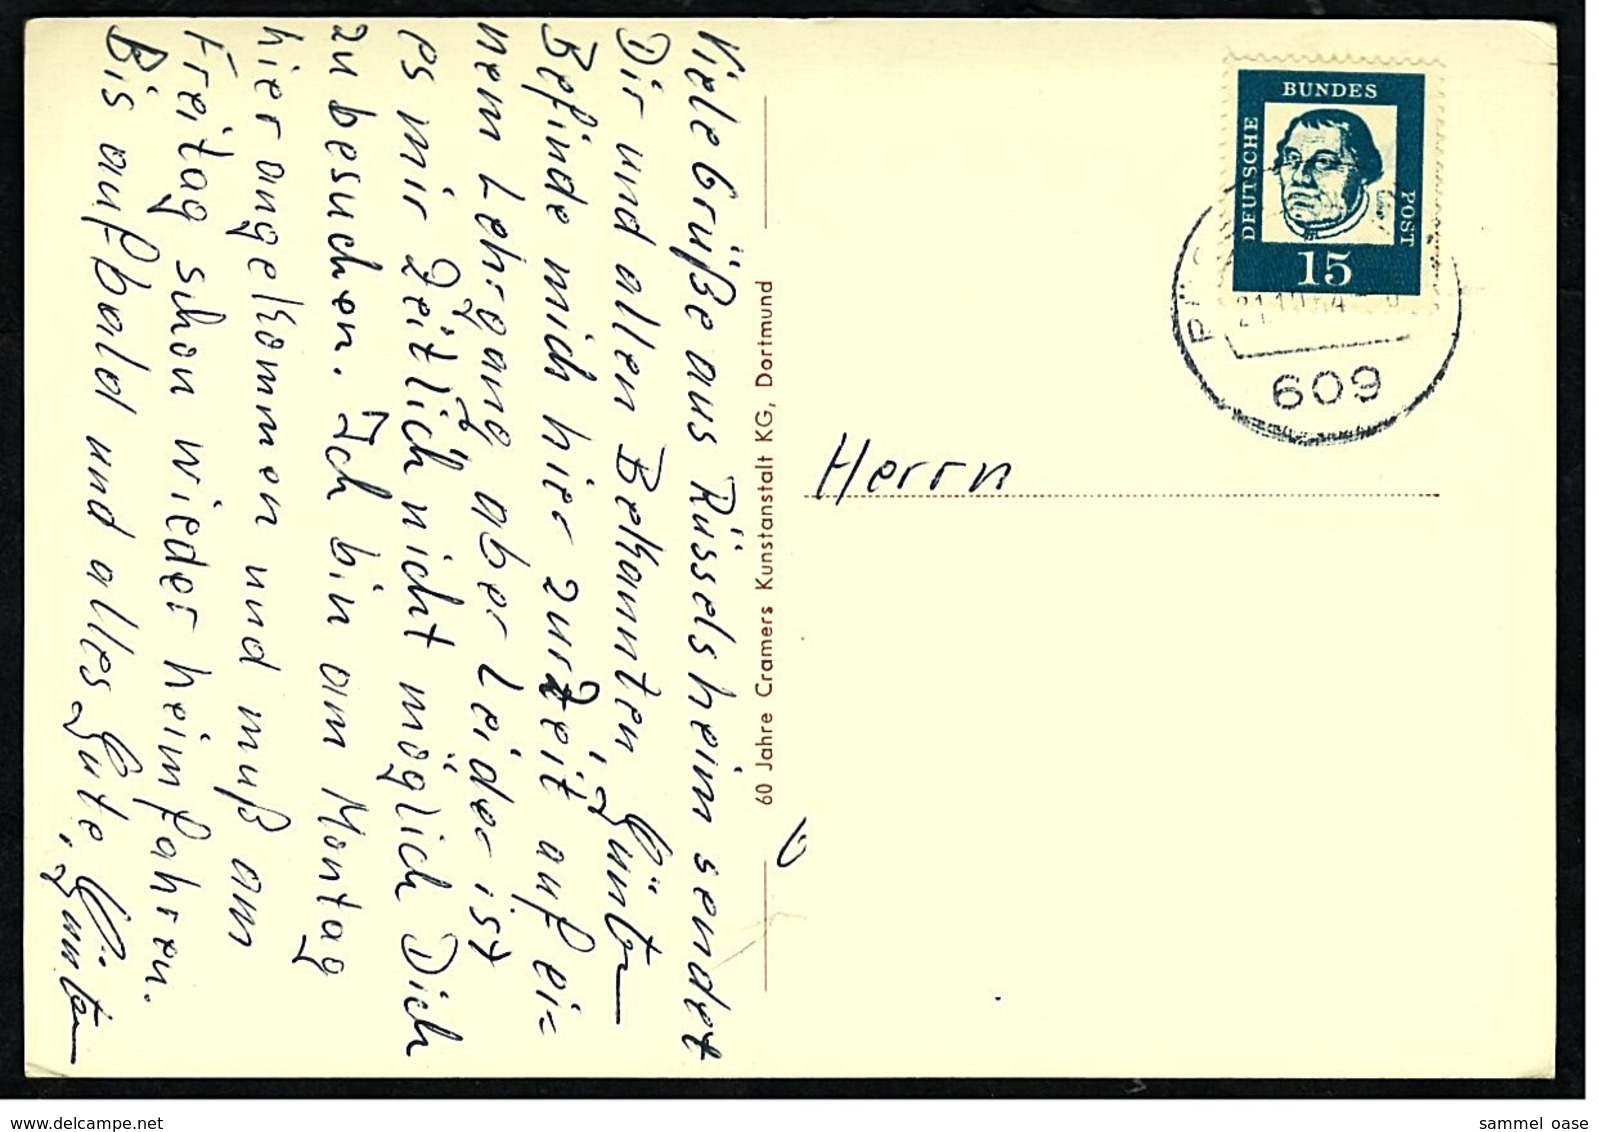 Viele Grüße aus Rüsselsheim sendet
Dir und allen Bekannten, Günter
Befinde mich hier zurzeit auf ei=
nem Lehrgang aber leider ist
es mir Zeitlich nicht möglich Dich
zu besuchen. Ich bin am Montag
hier angekommen und muß am
Freitag schon wieder heimfahren.
Bis auf bald und alles Gute, Günter
60 Jahre Cramers Kunstanstalt KG, Dortmund
Herrn
DEUTSCHE
BUNDES
POST
15
609
delcampe.net
sammel oase